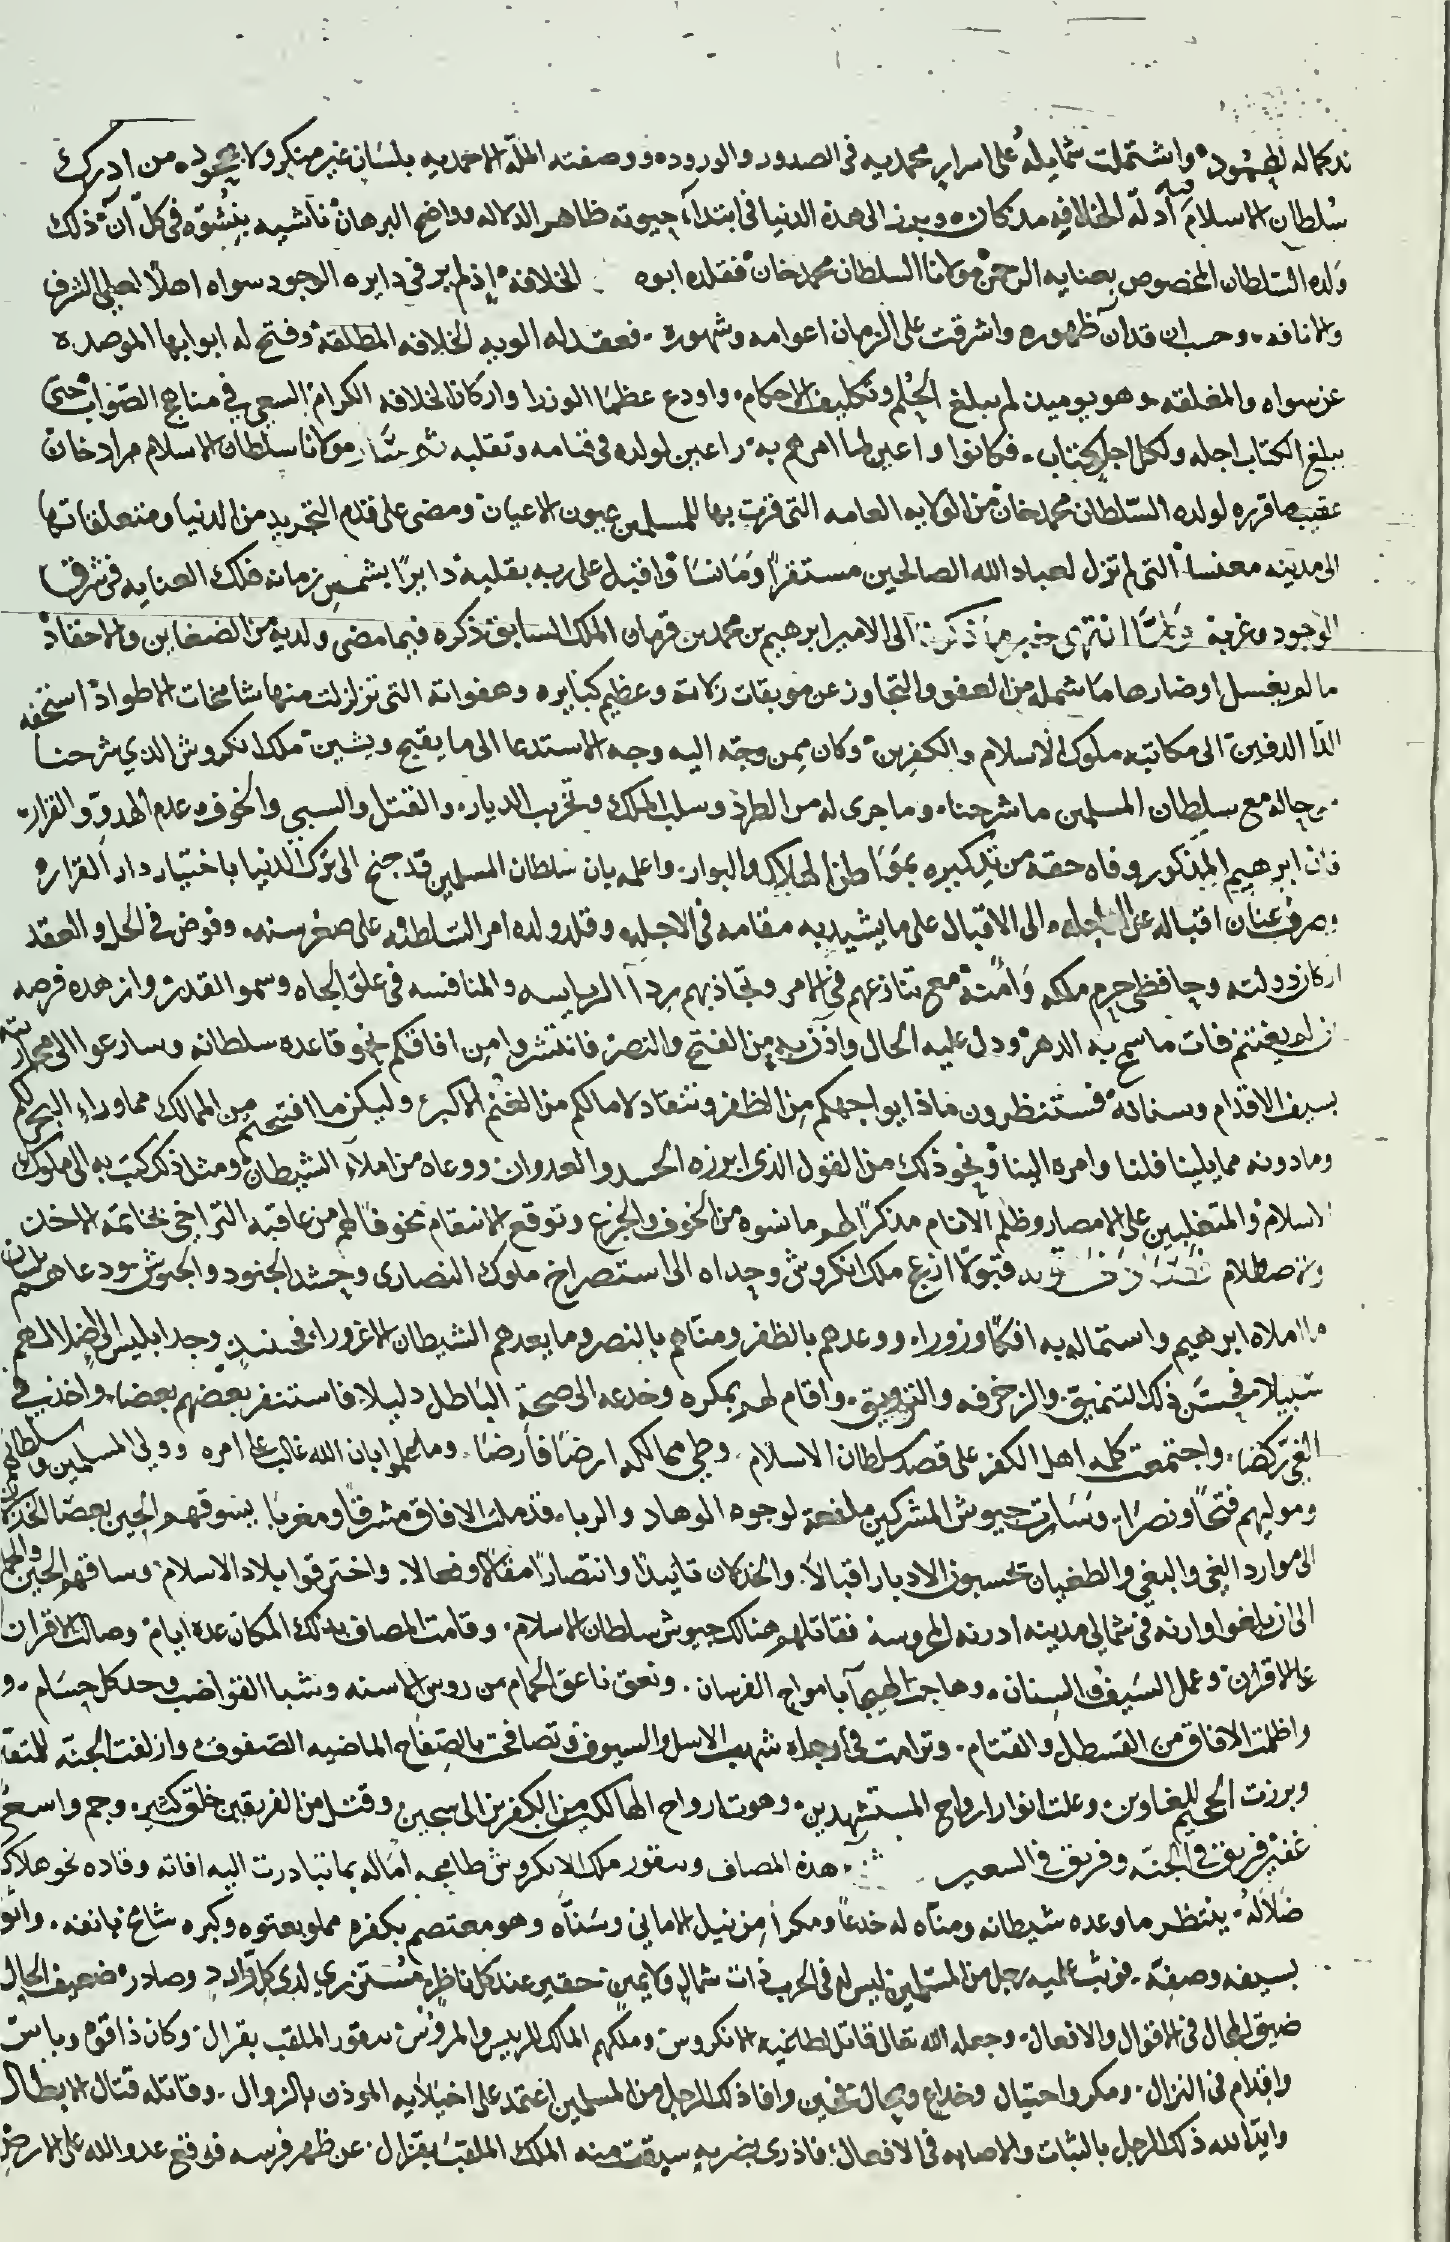 كماله لشهود واشتملت شمايله على اسرار محمديه فى الصدور والورود ووصفته الملّة الاحمديه بلسان غير منكر ولا جحود من ادرك
سلطان الاسلام فيه ادلّة الخلافه مذ كان وبرز الى هذه الدنيا فى ابتداء حيوته ظاهر الدلاله وواضح البرهان ناشيه بنشوّه فى كلّ آن ذلك
ولده السّلطان المخصوص بعنايه الرحمن مولانا السلطان محمد خان فقلده ابوه الخلافة اذ لم ير فى دايره الوجود سواه اهلا لعلى الشرف
والانافه وحسب ان قد آن ظهوره واشرقت على الزمان اعوامه وشهوره فعقد له الويه الخلافه المطلقه وفتح له ابوابها الموصده
عن سواه والمغلقه وهو يوميذ لم يبلغ الحلم وتكليف الاحكام واودع عظما الوزرا واركان الخلافه الكرام السعى فى مناهج الصواب حتى
يبلغ الكتاب اجله ولكل اجل كتاب فكانوا واعين لما امرهم به راعين لولده فى قيامه وتقلبه مولانا سلطان الاسلام مراد خان
عقيب ما قرره لولده السّلطان محمد خان من الولايه العامه التى قرت بها للمسلمين عيون الاعيان ومضى على قدم التجريد من الدنيا ومتعلقاتها
الى مدينه مغنسا التى لم تزل لعباد الله الصالحين مستقرا واقبل على ربه بقلبه دايرا بشمس زمانه فلك العنايه
الوجود وغربه ولمّا انتهى خبر ما ذكرنا الى الامير ابرهيم بن محمد بن قرمان الملك السابق ذكره فيما مضى ولديه من الضغاين والاحقاد
ما لم يغسل اوضارها ما شمله من العفو والتجاوز عن موبقات زلاته وعظيم كبايره وهفواته التى تزلزلت منها شامخات الاطواد استخفه
الدا الدفين الى مكاتبه ملوك الاسلام والكفرين وكان ممن وجّه اليه وجه الاستدعا الى ما يقبح ويشين ملك انكروش الذي شرحنا
من حاله مع سلطان المسلمين ما شرحنا وما جرى له من الطرد وسلب الملك وتخريب الديار والقتل والسبي والخوف وعدم الهدوّ والقرار
فان ابرهيم المذكور وفاه حقه من تذكيره بمواطن الهلاك والبوار واعلمه بان سلطان المسلمين قد جنح الى ترك الدنيا باختيار دار القرار
وصرف عنان اقباله عن العاجله الى الاقبال على ما يشيد به مقامه فى الاجله وقلد ولده امر السّلطنه على صغر سنه وفوض فى الحل والعقد
اركان دولته وحافظى حرم ملكه وامّته مع تنازعهم فى الامر وتجاذبهم ردآ الرياسه والمنافسه فى علو الجاه وسمو القدر وان هذه فرصه
ان لم يغتنم فات ما سمح به الدهر ودل عليه الحال واذن به من الفتح والنصر فانتشروا من افاقكم نحو قاعده سلطانه وسارعوا الى محاربته
بسيف الاقدام وسنانه فستنظرون ماذا يواجهكم من الظفر وتنقاد لامالكم من الغنم الاكبر وليكن ما افتتحتم من الممالك مما وراء البحر لكم
وما دونه مما يلينا فلنا وامره الينا ونحو ذلك من القول الذى ابرزه الحسد والعدوان ووعاه من املاء الشيطان ومثل ذلك كتب به الى ملوك
الاسلام والمتغلبين على الامصار وظلم الانام مذكرا لهم ما نسوه من الخوف والجزع وتوقع الانتقام مخوفا لهم من عاقبه التراخى بخاتمه الاخذ
والاصطلام قبولا ازعج ملك انكروش وحداه الى استصراخ ملوك النصارى وحشد الجنود والجيوش ودعاهم بلسان
ما املاه ابرهيم واستماله به افكا وزورا ووعدهم بالظفر ومنّاهم بالنصر وما يعدهم الشيطان الا غرورا فحينئذ وجد ابليس الى اضلالهم
سبيلا فحسّن ذلك التنميق والزخرفه والتزويق واقام لهم بمكره وخدعه الى صحة الباطل دليلا فاستنفر بعضهم بعضا واخذ فى
الغيّ ركضا واجتمعت كلمه اهل الكفر على قصد سلطان الاسلام وطي ممالكه ارضا فارضا وما علموا بان الله غالب على امره وولي المسلمين وسلطانهم
وموليهم فتحا ونصرا وسارت جيوش المشركين ملفعة لوجوه الوهاد والربا قد ملات الافاق مشرقا ومغربا يسوقهم الحين بعصا
الى موارد الغي والبغي والطغيان يحسبون الادبار اقبالا والخذلان تاييدا وانتصارا مقالا وفعالا واخترقوا بلاد الاسلام وساقهم الحين
الى ان بلغوا وارنه فى شمالى مدينه ادرنه المحروسه فقاتلهم هنالك جيوش سلطان الاسلام وقامت المصاف بذلك المكان عدة ايام وصالت الاقران
على الاقران وعمل السّيف والسنان وهاجت الهيجآ بامواج الفرسان ونعق ناعق الحمام من روس الاسنه وشبا القواضب وحد كل حسام
واظلمت الافاق من القسطل والقتام وترامت فى ارجايه شهب الاسل والسيوف وتصافحت بالصفاح الماضيه الصفوف وازلفت الجنّه للمتقين
وبرزت الجحيم للغاوين وعلت انوار ارواح المستشهدين وهوت ارواح الهالكين من الكفرين الى سجين وقتل من الفريقين خلق كثير وجم واسع
غفير فريق فى الجنّه وفريق فى السعير هذه المصاف وسقور ملك الانكروش طامحه آماله بما تبادرت اليه افاته وقاده نحو هلاكه
ضلاله ينتظر ما وعده شيطانه ومنّاه له خدعا ومكرا من نيل الامانى وسنّاه وهو معتصم بكفره مملو بعتوه وكبره شامخ بانفه
بسيفه وصفه فوثب عليه رجل من المسلمين ليس له فى الحرب ذات شمال ولا يمين حقير عند كل ناظر مستزرى لدى كل وارد وصادر ضعيف الحال
ضيق المجال فى الاقوال والافعال وجعله الله تعالى قاتلا لطاغيه الانكروس وملكهم المالك للرييس والمروس سقور الملقب بقرال وكان ذا قوه وباس
واقدام فى النزال ومكر واحتيال وخداع ومحال وافا ذلك الرجل من المسلمين اعتمد على اختيلايه الموذن بالزوال وقاتله قتال الابطال
وايّد الله ذلك الرجل بالثبات والاصابه فى الافعال فاذرى بضربه سبقت منه الملك الملقب بقرال عن ظهر فرسه فوقع عدو الله على الارض